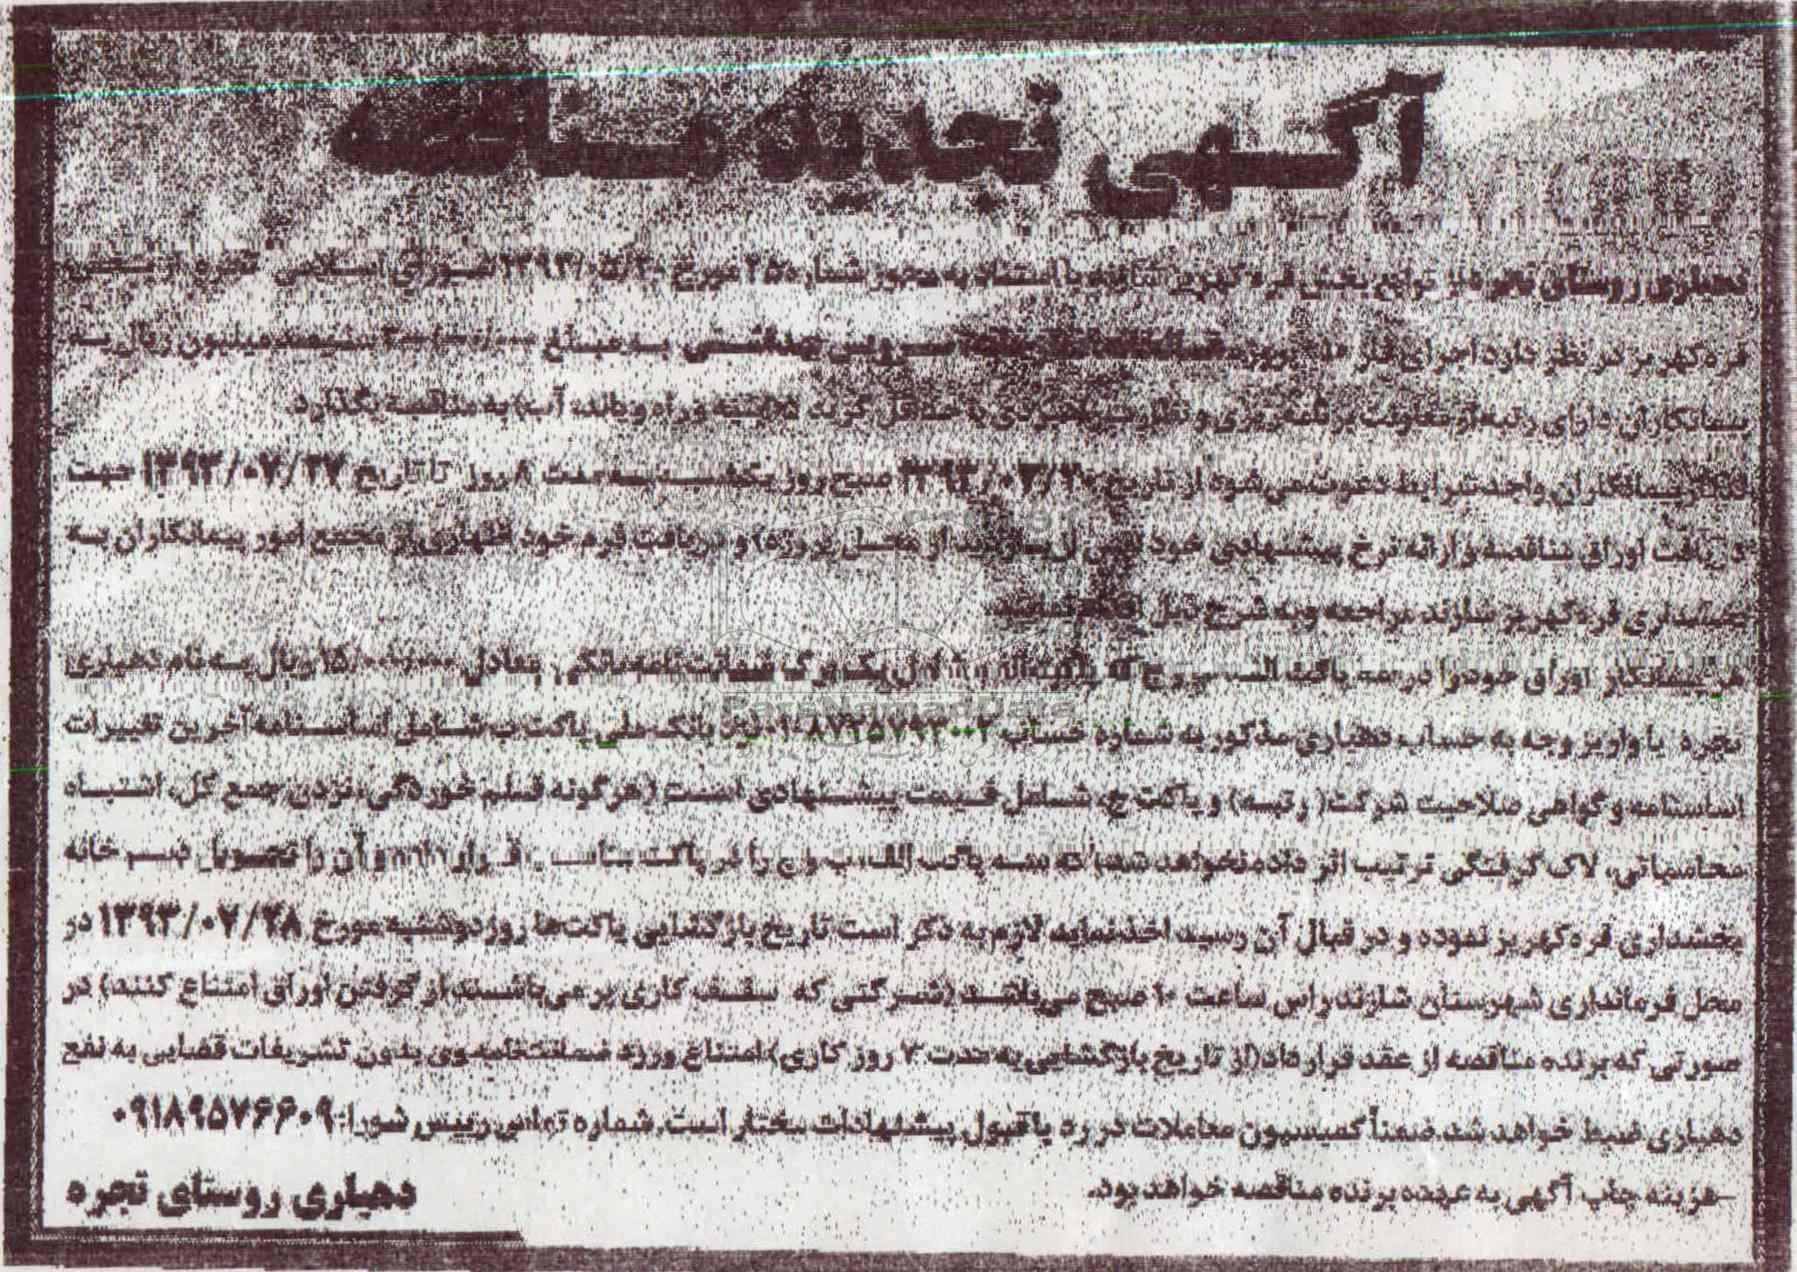 آگهی تجدید مناقصه
دهیاری روستای تجره از توابع بخش قره کهریز شازند با استناد به مجوز شماره ۲۵ مورخ شورای اسلامی تجره بخش
قره کهریز در نظر دارد اجرای فاز پروژه سرویس بهداشتی به مبلغ سیصد میلیون ریال به
پیمانکاران دارای رتبه از معاونت برنامه‌ریزی و نظارت راهبردی با حداقل گرید ۵ ابنیه و راه و باند، آب) به مناقصه بگذارد.
لذا از پیمانکاران واجد شرایط دعوت می‌شود از تاریخ صبح روز یکشنبه به مدت ۸ روز تا تاریخ ۱۳۹۳/۰۷/۲۷ جهت
دریافت اوراق مناقصه و ارائه نرخ پیشنهادی خود (پس از بازدید از محل پروژه) و دریافت فرم خود اظهاری از مجتمع امور پیمانکاران به
بخشداری قره کهریز شازند مراجعه و به شرح ذیل اقدام نمایند
هر پیمانکار اوراق خود را در سه پاکت الف، ب و ج که پاکت الف شامل یک برگ ضمانت‌نامه بانکی معادل ۱۵/۰۰۰/۰۰۰ ریال به نام دهیاری
تجره یا واریز وجه به حساب دهیاری مذکور به شماره حساب نزد بانک ملی پاکت ب شامل اساسنامه آخرین تغییرات
اساسنامه و گواهی صلاحیت شرکت( رتبه) و پاکت ج، شامل قیمت پیشنهادی است (هرگونه قلم خوردگی، نزدن جمع کل، اشتباه
محاسباتی، لاک گرفتگی ترتیب اثر داده نخواهد شد) که سه پاکت الف، ب و ج را در پاکت مناسب قرار داده و آن را تحویل دبیرخانه
بخشداری قره کهریز نموده و در قبال آن رسید اخذ نماید لازم به ذکر است تاریخ بازگشایی پاکت‌ها روز دوشنبه مورخ ۱۳۹۳/۰۷/۲۸ در
محل فرمانداری شهرستان شازند راس ساعت ۱۰ صبح می‌باشد (شرکتی که سقف کاری پر می‌باشند از گرفتن اوراق امتناع کنند) در
صورتی که برنده مناقصه از عقد قرارداد(از تاریخ بازگشایی به مدت ۳ روز کاری) امتناع ورزد ضمانتنامه وی بدون تشریفات قضایی به نفع
دهیاری ضبط خواهد شد. ضمناً کمیسیون معاملات در رد یا قبول پیشنهادات مختار است. شماره تماس رییس شورا: ۰۹۱۸۹۵۷۶۶۰۹
-هزینه چاپ آگهی به عهده برنده مناقصه خواهد بود.
دهیاری روستای تجره
ParsNamadData